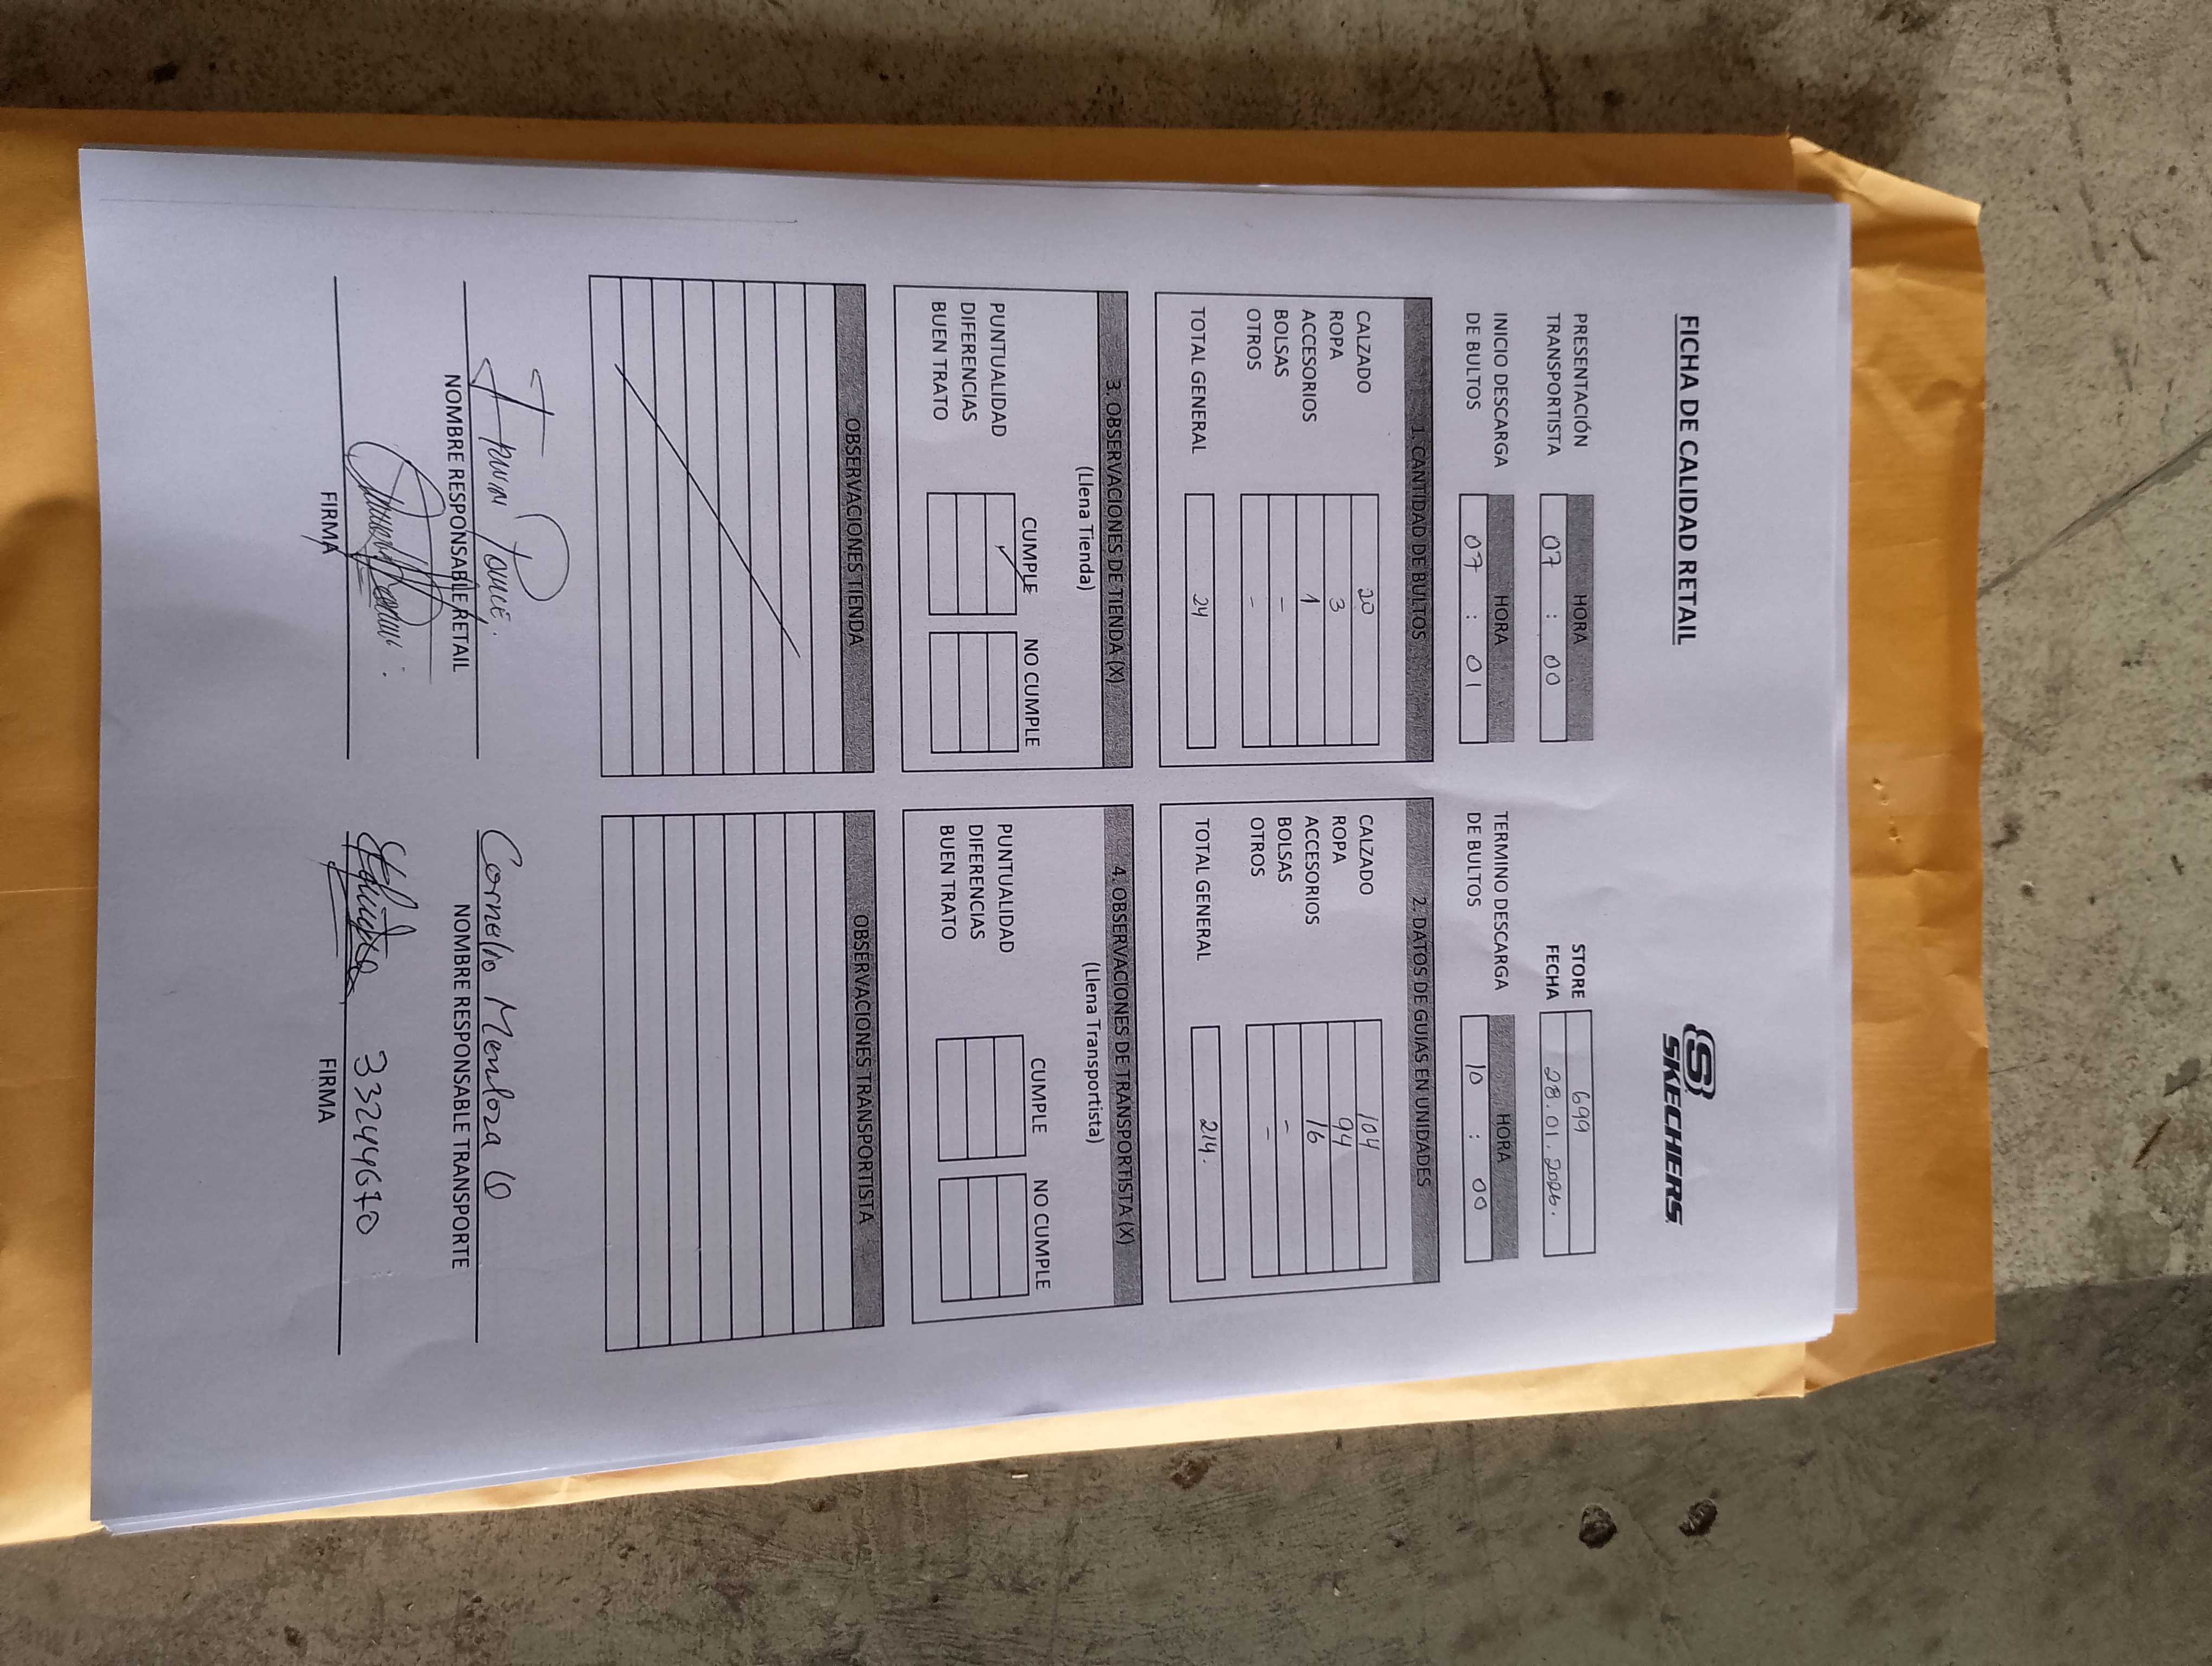 FICHA DE CALIDAD RETAIL
S SKECHERS
STORE 699
FECHA 28.01.2026.
PRESENTACIÓN TRANSPORTISTA HORA 07 : 00
INICIO DESCARGA DE BULTOS HORA 07 : 01
TERMINO DESCARGA DE BULTOS HORA 10 : 00
1. CANTIDAD DE BULTOS
CALZADO 20
ROPA 3
ACCESORIOS 1
BOLSAS -
OTROS -
TOTAL GENERAL 24
2. DATOS DE GUIAS EN UNIDADES
CALZADO 104
ROPA 94
ACCESORIOS 16
BOLSAS -
OTROS -
TOTAL GENERAL 214.
3. OBSERVACIONES DE TIENDA (X)
(Llena Tienda)
CUMPLE NO CUMPLE
PUNTUALIDAD ✓
DIFERENCIAS
BUEN TRATO
4. OBSERVACIONES DE TRANSPORTISTA (X)
(Llena Transportista)
CUMPLE NO CUMPLE
PUNTUALIDAD
DIFERENCIAS
BUEN TRATO
OBSERVACIONES TIENDA
OBSERVACIONES TRANSPORTISTA
Ponce.
NOMBRE RESPONSABLE RETAIL
Cornelio Mendoza Q
NOMBRE RESPONSABLE TRANSPORTE
FIRMA
33244670
FIRMA